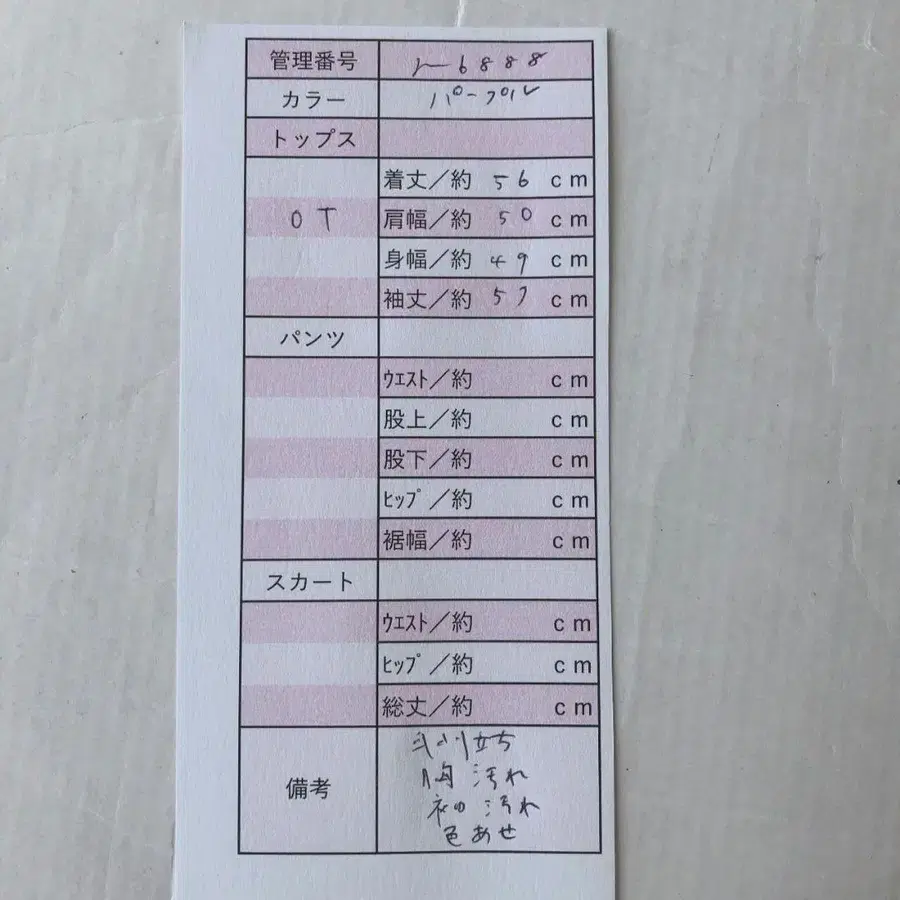 管理番号 6888
カラー パープル
トップス
着丈／約 56 cm
OT 肩幅／約 50 cm
身幅／約 49 cm
袖丈／約 57 cm
パンツ
ｳｴｽﾄ／約 cm
股上／約 cm
股下／約 cm
ﾋｯﾌﾟ／約 cm
裾幅／約 cm
スカート
ｳｴｽﾄ／約 cm
ﾋｯﾌﾟ／約 cm
総丈／約 cm
備考
立ち
胸汚れ
袖汚れ
色あせ